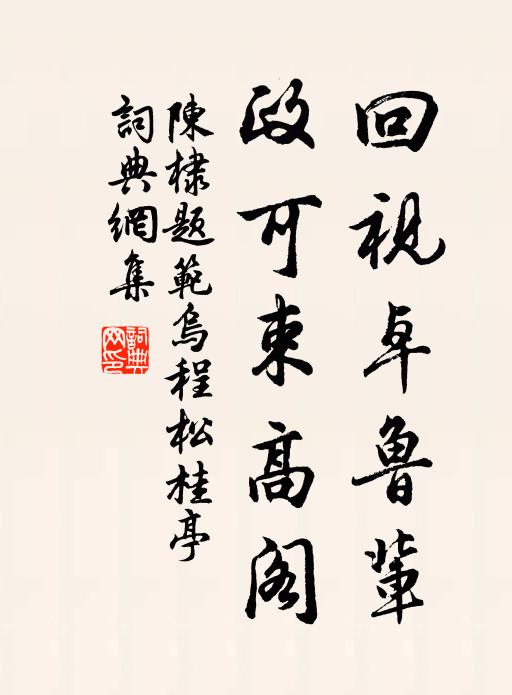 回視卓魯輩
政可束高閣
陳棣題範烏程松桂亭
詞典網集
詞典網印